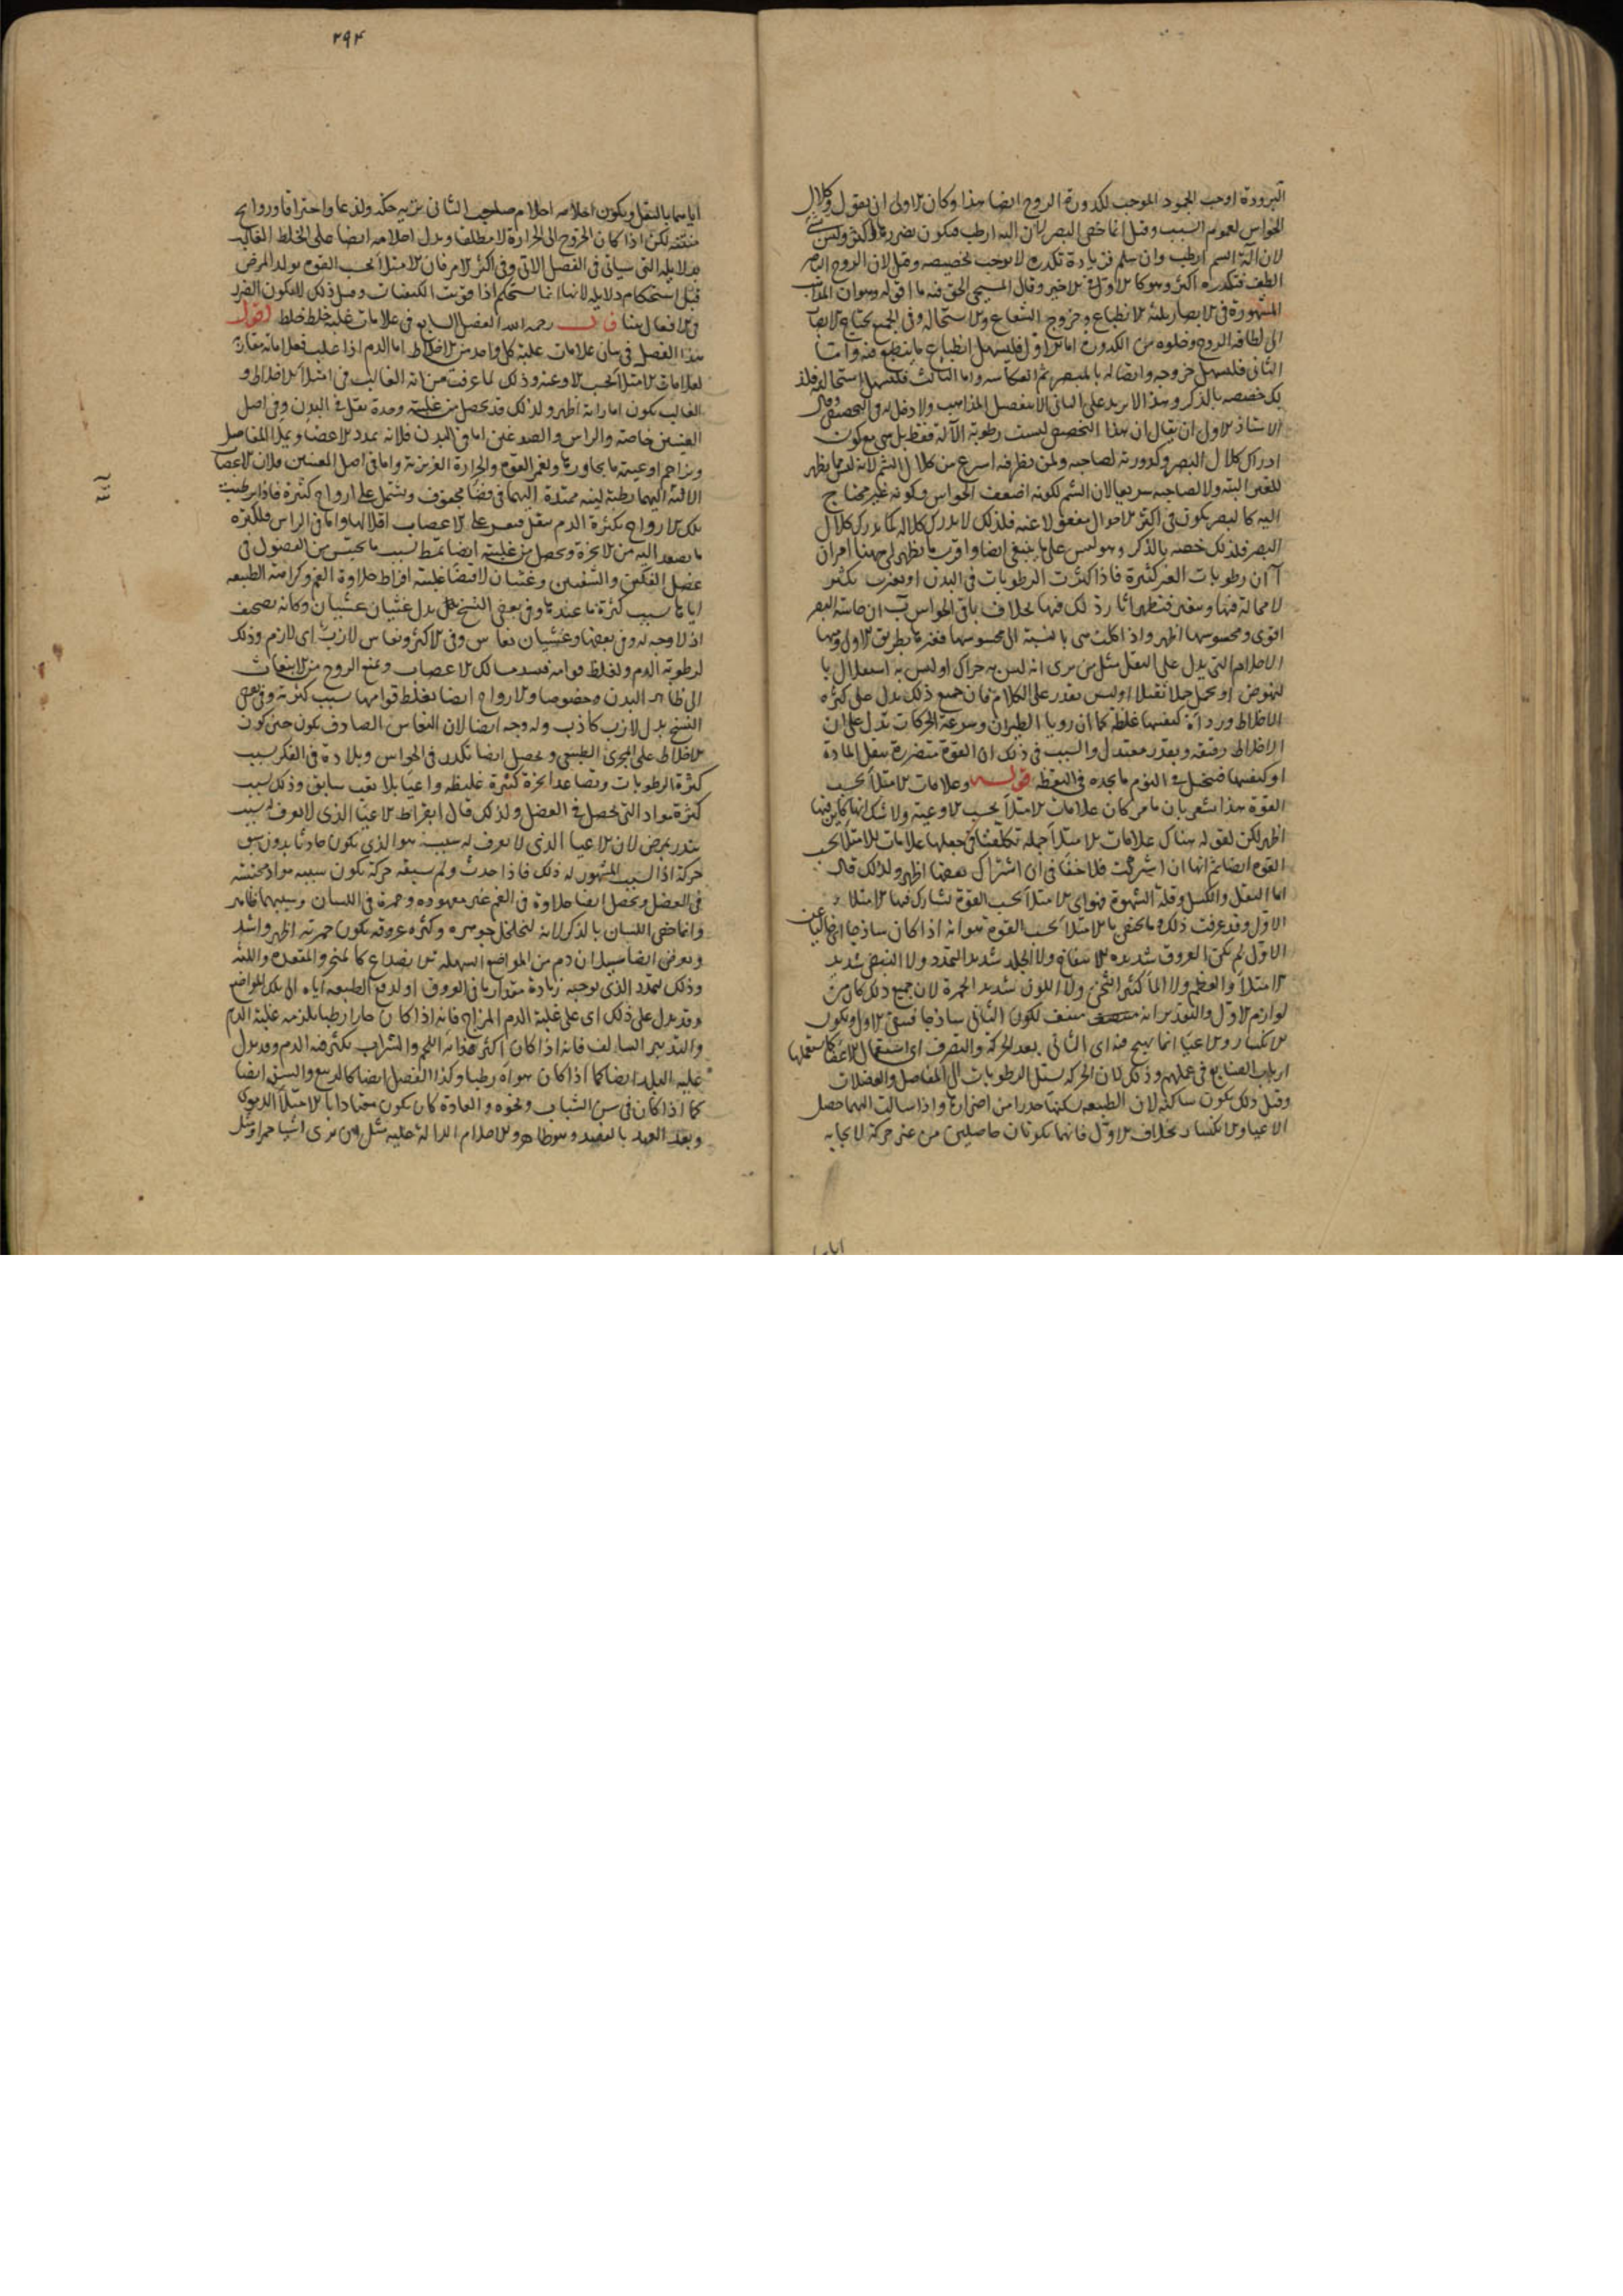 البرودة اوجب الجمود الموجب لكدورة الروح ايضا هذا وكان الاولى ان يقول وكلال
الحواس لعموم السبب وقيل انما خص البصر لان اليه ارطب فيكون تضرره اكثر وليس بشئ
لان آلة الشم ارطب وان سلم فزيادة تكدره لا يوجب تخصيصه وقيل لان الروح الباصر
الطف فتكدره اكثر وهو كالاول في الاخير وقال المسيحى الحق فيه ما اقوله وهو ان المذاهب
المشهورة في الابصار ثلثة الانطباع وخروج الشعاع والاستحالة وفى الجميع يحتاج الابصار
الى لطافة الروح وخلوه من الكدورة اما الاول فليسهل انطباع ما ينطبع فيه واما
الثانى فليسهل خروجه واتصاله بالمبصر ثم انعكاسه واما الثالث فليسهل استحالته فلذ
لك خصصه بالذكر وهذا لا يزيد على الثانى الا بتفصيل المذاهب ولا دخل له في التخصيص وقال
الاستاذ الاول ان يقال ان هذا التخصيص ليست رطوبة الآلة فقط بل هى مع كون
ادراك كلال البصر وكدورته لصاحبه ولمن نظر فيه اسرع من كلال الشم لانه ليس مما يظهر
للغير البتة ولا لصاحبه سريعا لان الشم لكونه اضعف الحواس وكونه غير محتاج
اليه كالبصر يكون في اكثر الاحوال مغفولا عنه فلذلك لا يدرك كلاله كما يدرك كلال
البصر فلذلك خصه بالذكر وهو ليس على ما ينبغى ايضا واقرب ما يظهر لى ههنا امران
آ ان رطوبات العين كثيرة فاذا كثرت الرطوبات في البدن او تعفنت يكثر
لا محالة فيها وتتعفن فتظهر آثار ذلك فيها بخلاف باقى الحواس ب ان حاسة البصر
اقوى ومحسوسها اظهر واذا كلت هى بالنسبة الى محسوسها فغيرها بطريق الاولى ومنها
الاحلام التى يدل على الثقل مثل من يرى انه ليس به حراك او ليس به استقلال با
لنهوض او يحمل حملا ثقيلا او ليس يقدر على الكلام فان جميع ذلك يدل على كثرة
الاخلاط ورداءة كيفيتها غلظة كما ان رويا الطيران وسرعة الحركات تدل على ان
الاخلاط رقيقة وبقدر معتدل والسبب في ذلك ان القوة متضررة بثقل المادة
او كيفيتها فتتخيل في النوم ما يجده في اليقظة قوله وعلامات الامتلاء بحسب
القوة هذا مشعر بان ما مر كان علامات الامتلاء بحسب الاوعية ولا شك انها كاين فيها
اظهر لكن لقوله هناك علامات الامتلاء جملة تكلفنا في جعلها علامات للامتلاء بحسب
القوة ايضا ثم انها ان اشتركت فلا خفاء فى ان اشتراك بعضها اظهر ولذلك قال
اما الثقل والكسل وقلة الشهوة فهو اى الامتلاء بحسب القوة يشارك فيها الامتلاء
الاول وقد عرفت ذلك وما يختص بالامتلاء بحسب القوة هو انه اذا كان ساذجا اى خاليا عن
الاول لم تكن العروق شديدة الانتفاخ ولا الجلد شديد التمدد ولا النبض شديد
الامتلاء والعظم ولا الماء كثير الثخن ولا اللون شديد الحمرة لان جميع ذلك كان من
لوازم الاول والتقدير انه منتف لكون الثانى ساذجا فبقى الاول ويكون
الانكسار والاعياء انما يهيج فيه اى الثانى بعد الحركة والتصرف اى استعمال الاعضاء كاستعمالها
ارباب الصنايع في عملهم وذلك لان الحركة يسيل الرطوبات الى المفاصل والعضلات
وقبل ذلك يكون ساكنة لان الطبيعة يسكنها حذرا من اضرارها واذا سالت اليهما حصل
الاعياء والانكسار بخلاف الاول فانهما يكونان حاصلين من غير حركة لايجابه
ايا
٢٩٤
اياهما بالثقل ويكون احلامه احلام صاحب الثانى تريه حكة ولذعا واحتراقا وروايح
منتنة لكن اذا كان الخروج الى الحرارة لا مطلقا ويدل احلامه ايضا على الخلط الغالب
بدلايله التى سياتى فى الفصل الاتى وفى اكثر الامر فان الامتلاء بحسب القوة يولد المرض
قبل استحكام دلايله لانها انما يستحكم اذا قويت الكيفيات وقبل ذلك يكون الضرر
فى الافعال بينا قال رحمه الله الفصل السابع فى علامات غلبة خلط خلط اقول
هذا الفصل في بيان علامات غلبة كل واحد من الاخلاط اما الدم اذا غلب فعلاماته مقارنة
لعلامات الامتلاء بحسب الاوعية وذلك لما عرفت من انه الغالب فى امتلاء الاخلاط و
الغالب يكون اماراته اظهر ولذلك قد يحصل من غلبته وحده ثقل في البدن وفى اصل
العينين خاصة والراس والصدغين اما في البدن فلانه يمدد الاعضاء ويملأ المفاصل
ويزاحم اوعيته ما يجاورها ويغمر القوة والحرارة الغريزية واما فى اصل العينين فلان الاعصاب
الآتية اليهما رطبة لينة ممتدة اليهما فى فضاء مجوف ويشتمل على ارواح كثيرة فاذا رطبت
تلك الارواح بكثرة الدم ثقل فيعسر على الاعصاب اقلالها واما في الراس فلكثرة
ما يصعد اليه من الابخرة ويحصل من غلبته ايضا تمط بسبب ما يحتبس من الفضول فى
عضل الفكين والشفتين وغثيان لاقتضاء غلبته افراط حلاوة الفم وكراهة الطبيعة
اياها بسبب كثرة ما عندها وفى بعض النسخ بدل غثيان عشيان وكانه تصحيف
اذ لا وجه له وفى بعضها وغشيان نعاس وفى الاكثر ونعاس لازب اى لازم وذلك
لرطوبة الدم ولغلظ قوامه فيسد مسالك الاعصاب ويمنع الروح من الانبعاث
الى ظاهر البدن وخصوصا والارواح ايضا تغلظ قوامها بسبب كثرته وفى بعض
النسخ بدل لازب كاذب وله وجه ايضا لان النعاس الصادق يكون حين كون
الاخلاط على المجرى الطبيعى ويحصل ايضا تكدر فى الحواس وبلادة فى الفكر بسبب
كثرة الرطوبات وتصاعد ابخرة كثيرة غليظة واعياء بلا تعب سابق وذلك بسبب
كثرة مواد التى يحصل في العضل ولذلك قال ابقراط الاعياء الذى لا يعرف له سبب
ينذر بمرض لان الاعياء الذى لا يعرف له سبب هو الذى يكون حادثا بدون سبق
حركة اذ السبب المشهور له ذلك فاذا حدث ولم يسبقه حركة يكون سببه مواد محتبسة
فى العضل ويحصل ايضا حلاوة فى الفم غير معهودة وحمرة فى اللسان وسببهما ظاهر
وانما خص اللسان بالذكر لانه لتخلخل جوهره وكثرة عروقه يكون حمرته اظهر واشد
ويعرض ايضا سيلان دم من المواضع السهلة الانصداع كالمنخر والمقعدة واللثة
وذلك لتمدد الذى يوجبه زيادة مقدارها فى العروق او لدفع الطبيعة اياه الى تلك المواضع
وقد يدل على ذلك اى على غلبة الدم المزاج فانه اذا كان حارا رطبا يلزمه غلبة الدم
والتدبير السالف فانه اذا كان اكثر غذائه اللحم والشراب يكثر فيه الدم وقد يدل
عليه البلد ايضا كما اذا كان هواءه رطبا وكذا الفصل ايضا كالربيع والسن ايضا
كما اذا كان فى سن الشباب ونحوه والعادة كان يكون معتادا بالامتلاء الدموى
وبعد العهد بالفصد وهو ظاهر والاحلام الدالة عليه مثل من يرى اشياء حمراء ومثل